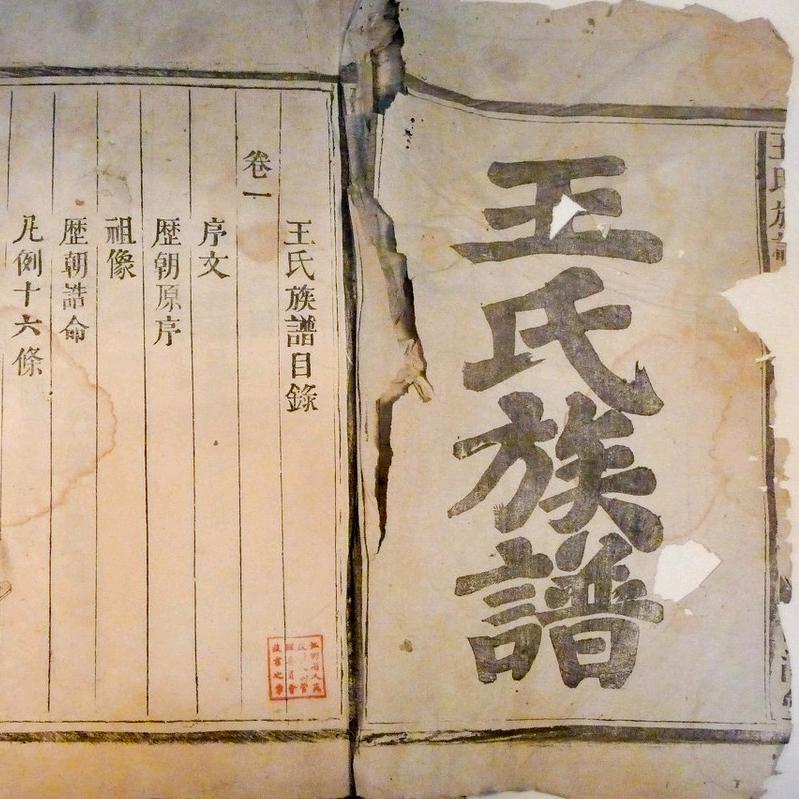 王氏族譜
王氏族譜目錄
卷一
序文
歷朝原序
祖像
歷朝誥命
凡例十六條